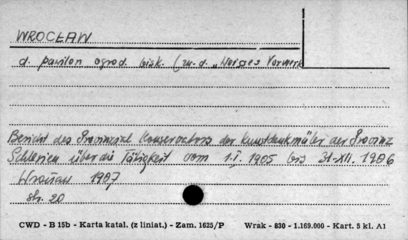 WROCŁAW
d. pawilon ogrod. bisk. (zw. d. „Heiges Vorwerk
Bericht des Provinzial Konservators der Kunstdenkmäler der Provinz
Schlesien über die Tätigkeit vom 1.I. 1905 bis 31.XII. 1906
Breslau 1907
str. 20
CWD - B 15b - Karta katal. (z liniat.) - Zam. 1625/P Wrak - 830 - 1.169.000 - Kart. 5 kl. A1